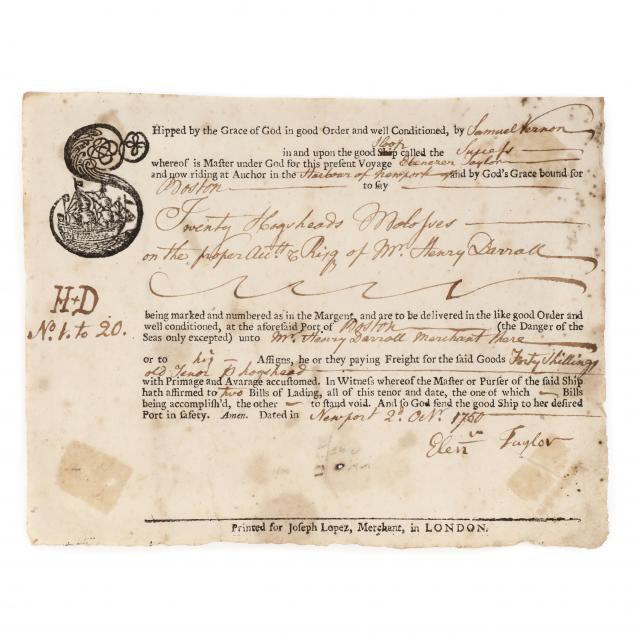 SHipped by the Grace of God in good Order and well Conditioned, by Samuel Vernon
Sloop
in and upon the good Ship called the Success
whereof is Master under God for this present Voyage Ebenezer Taylor
and now riding at Anchor in the Harbour of Newport and by God's Grace bound for
Boston to say
Twenty Hogsheads Molosses
on the proper Acctt & Risq of Mr. Henry Darrall
H+D
No. 1. to 20.
being marked and numbered as in the Margent, and are to be delivered in the like good Order and
well conditioned, at the aforesaid Port of Boston (the Danger of the
Seas only excepted) unto Mr. Henry Darrall Merchant there
or to his Assigns, he or they paying Freight for the said Goods Forty Shilling
old Tenor p hogshead
with Primage and Avarage accustomed. In Witness whereof the Master or Purser of the said Ship
hath affirmed to two Bills of Lading, all of this tenor and date, the one of which Bills
being accomplish'd, the other to stand void. And so God send the good Ship to her desired
Port in safety. Amen. Dated in Newport 2d. Octr. 1760
Eben Taylor
Printed for Joseph Lopez, Merchant, in LONDON.